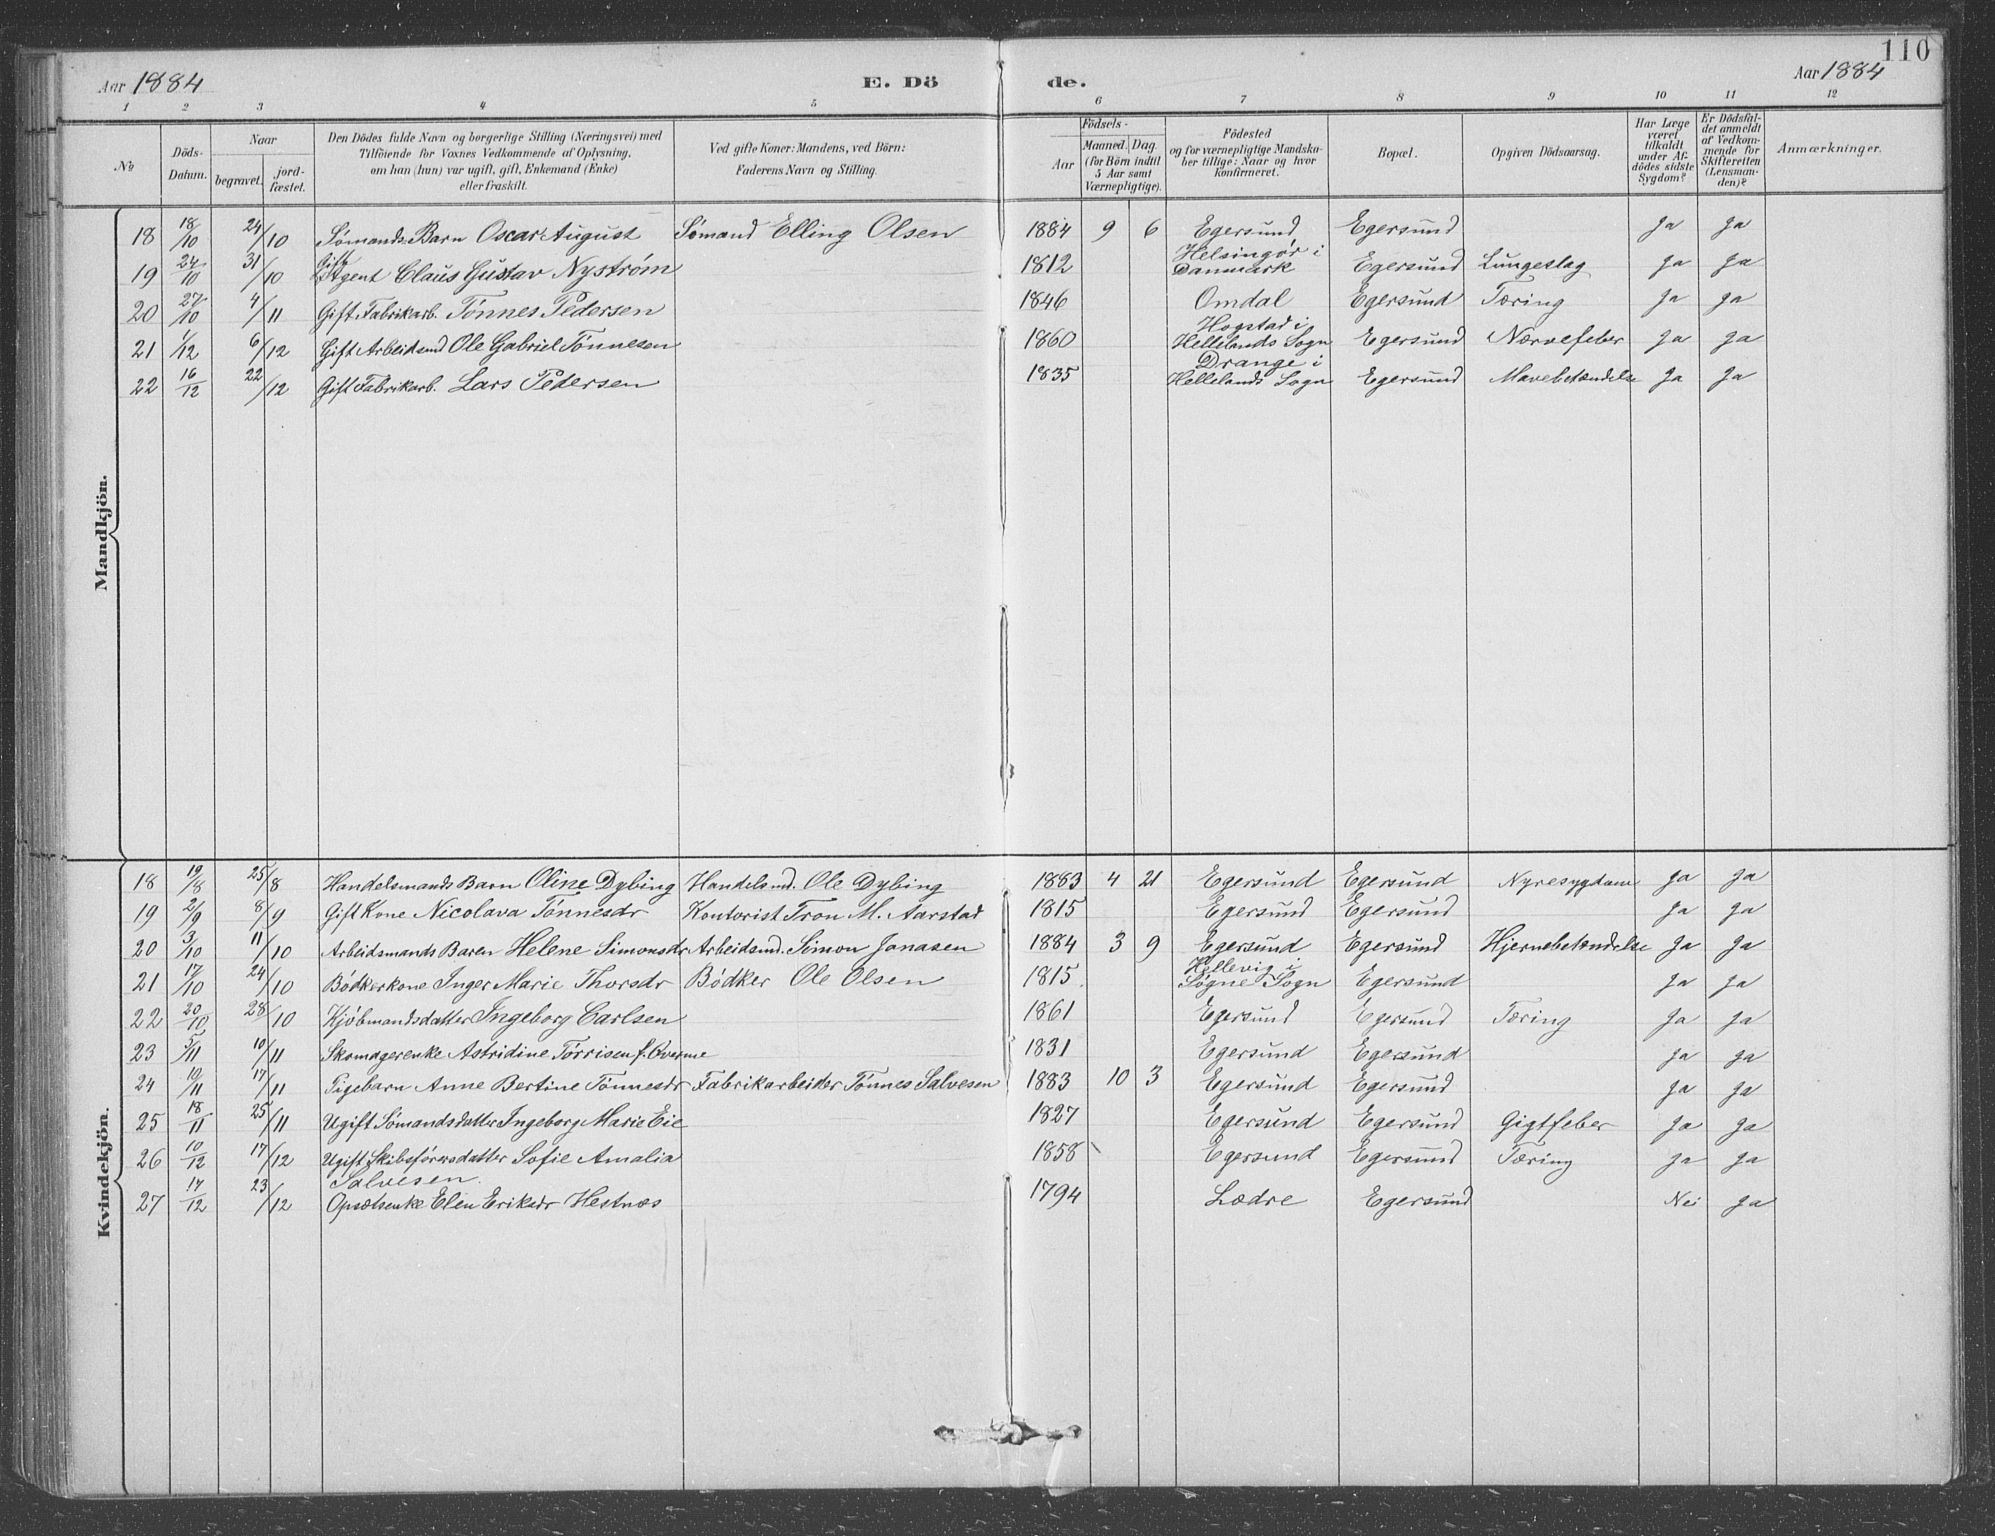 110
Aar 1884 E. Dö de. Aar 1884
1 2 3 4 5 6 7 8 9 10 11 12
No. Döds-Datum. Naar begravet. jord-fæstet. Den Dödes fulde Navn og borgerlige Stilling (Næringsvei) med Tilföiende for Voxnes Vedkommende af Oplysning, om han (hun) var ugift, gift, Enkemand (Enke) eller fraskilt. Ved gifte Koner: Mandens, ved Börn: Faderens Navn og Stilling. Födsels- Aar Maaned. Dag. (for Börn indtil 5 Aar samt Værnepligtige). Födested og for værnepligtige Mandskaber tillige: Naar og hvor Konfirmeret. Bopæl. Opgiven Dödsaarsag. Har Læge været tilkaldt under Afdödes sidste Sygdom? Er Dödsfaldet anmeldt af Vedkommende for Skifteretten (Lensmanden)? Anmærkninger.
Mandkjön.
18 18/10 24/10 Sømands Barn Oscar August Sømand Elling Olsen 1884 9 6 Egersund Egersund Ja Ja
19 24/10 31/10 Gift Agent Claus Gustav Nystrøm 1812 Helsingør i Danmark Egersund Lungeslag Ja Ja
20 27/10 4/11 Gift Fabrikarb. Tønnes Pedersen 1846 Omdal Egersund Tæring Ja Ja
21 1/12 6/12 Gift Arbeidsmd Ole Gabriel Tønnesen 1860 Hogstad i Hellelands Sogn Egersund Nærvefeber Ja Ja
22 16/12 22/12 Gift Fabrikarb. Lars Pedersen 1835 Drange i Hellelands Sogn Egersund Mavebetændelse Ja Ja
Kvindekjön.
18 19/8 25/8 Handelsmands Barn Oline Dybing Handelsmd. Ole Dybing 1883 4 21 Egersund Egersund Nyresygdom Ja Ja
19 2/9 8/9 Gift Kone Nicolava Tønnesdr Kontorist Tron M. Aarstad 1815 Egersund Egersund Ja Ja
20 3/10 11/10 Arbeidsmands Baren Helene Simonsdr Arbeidsmd. Simon Janasen 1884 3 9 Egersund Egersund Hjernebetændelse Ja Ja
21 17/10 24/10 Bødkerkone Inger Marie Thorsdr Bødker Ole Olsen 1815 Hellevig i Søgne Sogn Egersund Ja Ja
22 20/10 28/10 Kjøbmandsdatter Ingeborg Carlsen 1861 Egersund Egersund Tæring Ja Ja
23 5/11 10/11 Skomagerenke Astridine Tørrisen f. 1831 Egersund Egersund Ja Ja
24 10/11 17/11 Pigebarn Anne Bertine Tønnesdr Fabrikarbeider Tønnes Salvesen 1883 10 3 Egersund Egersund Ja Ja
25 18/11 25/11 Ugift Sømandsdatter Ingeborg Marie Eie 1827 Egersund Egersund Gigtfeber Ja Ja
26 10/12 17/12 Ugift Skibsførersdatter Sofie Amalia Salvesen. 1858 Egersund Egersund Tæring Ja Ja
27 17/12 23/12 Opsætsenke Elen Eriksdr Hestnæs 1794 Lædre Egersund Nei Ja